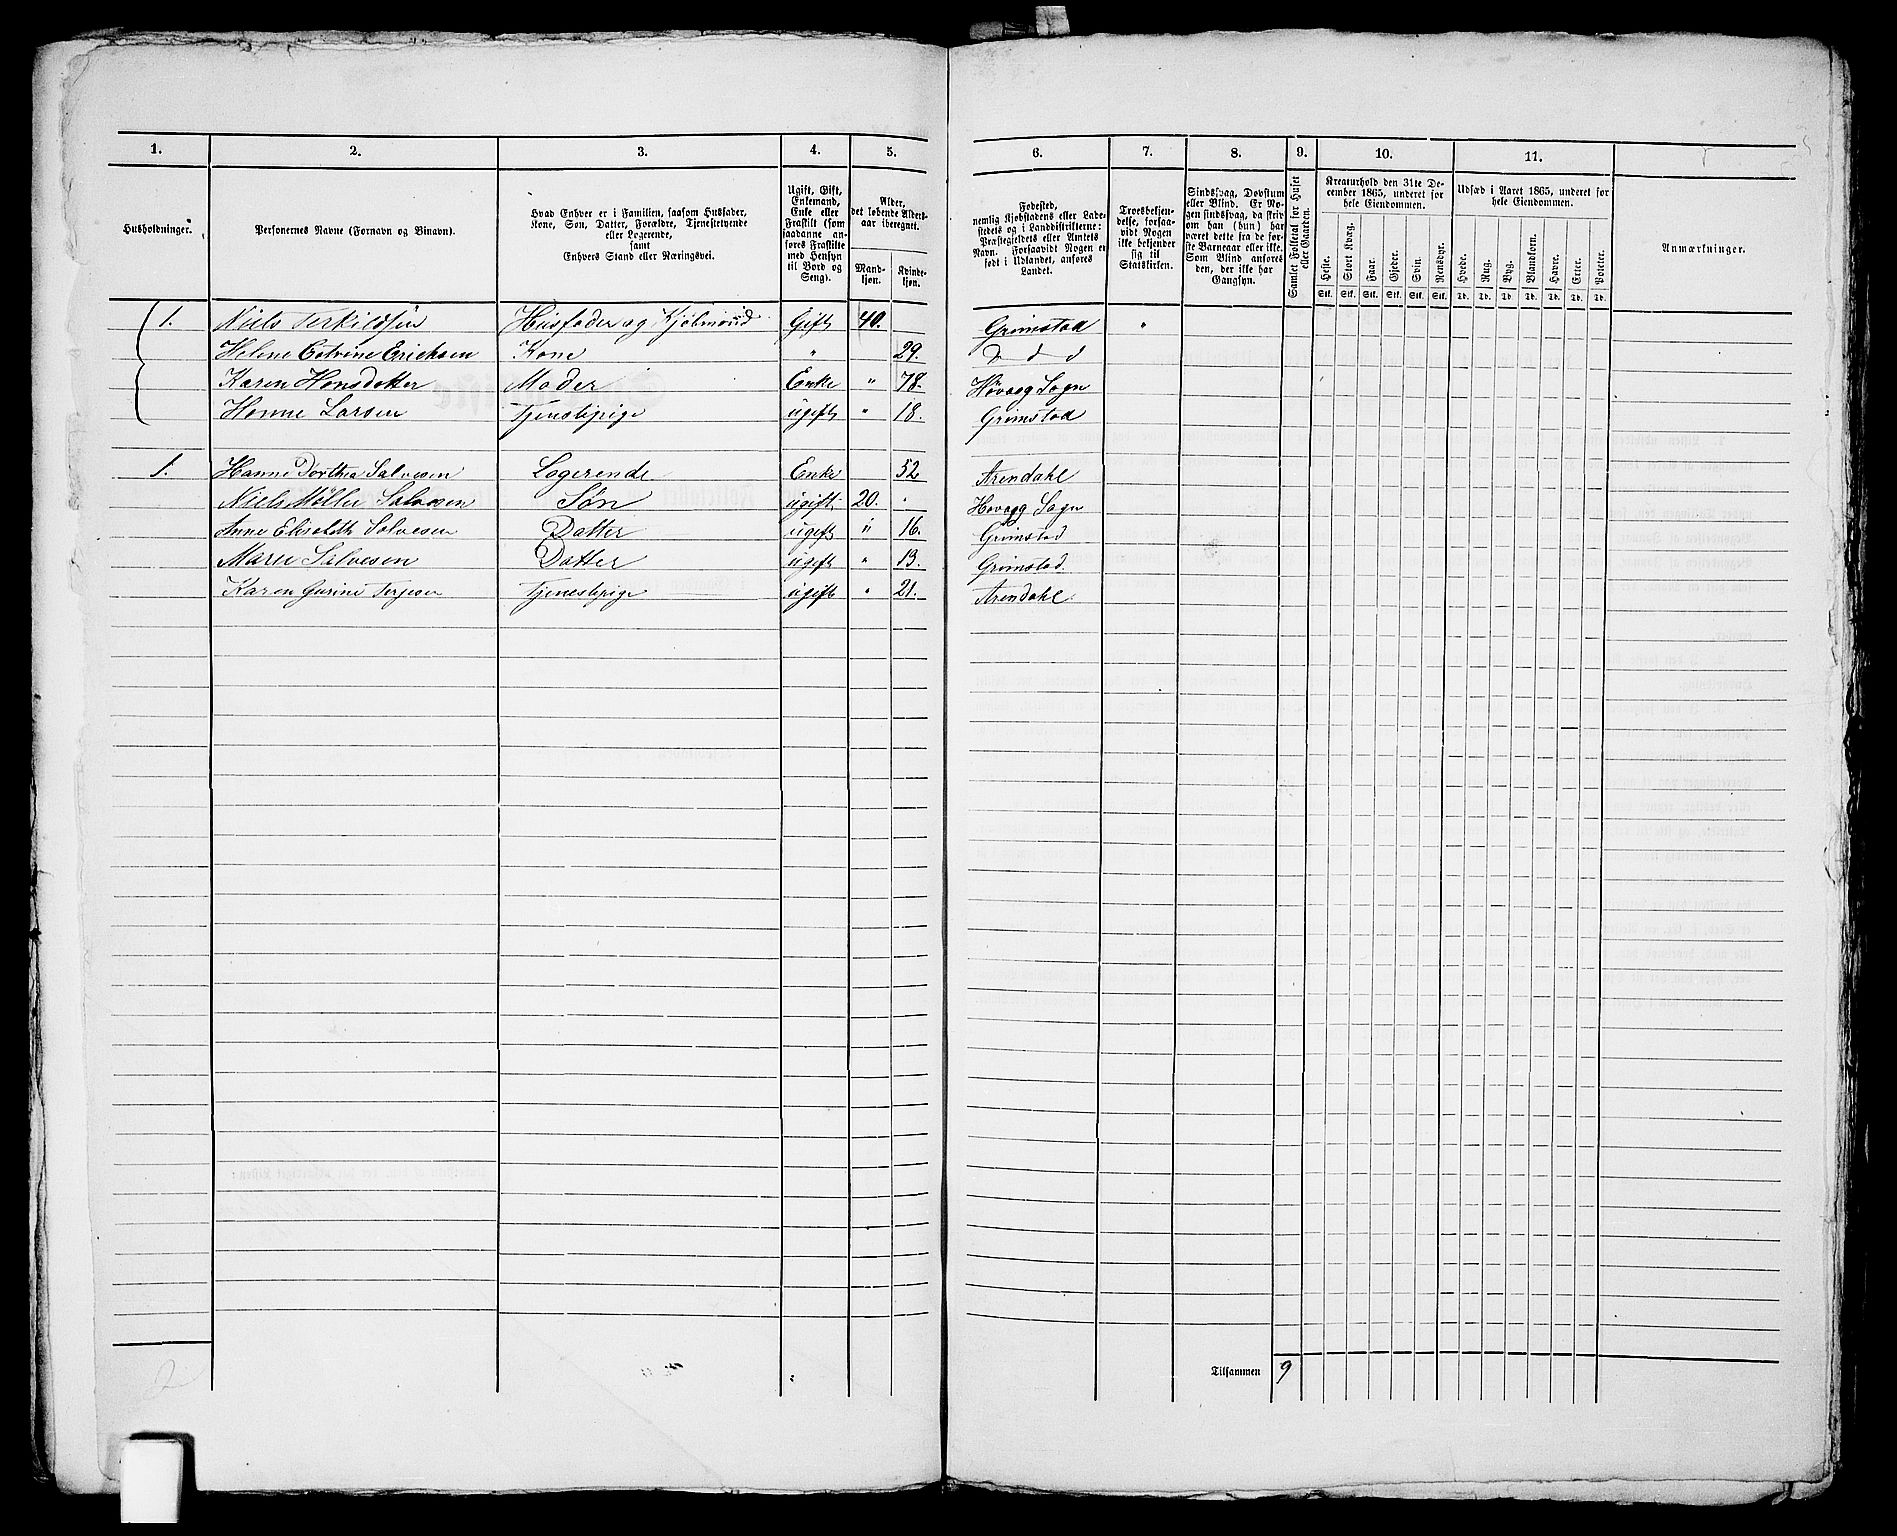 1. 2. 3. 4. 5. 6. 7. 8. 9. 10. 11.
Husholdninger.
Personernes Navne (Fornavn og Binavn).
Hvad Enhver er i Familien, saasom Husfader,
Kone, Søn, Datter, Forældre, Tjenestetyende
eller Logerende,
samt
Enhvers Stand eller Næringsvei.
Ugift, Gift,
Enkemand,
Enke eller
Fraskilt (som
saadanne an-
føres Fraskilte
med Hensyn
til Bord og
Seng).
Alder,
det løbende Alders-
aar iberegnet.
Mand-
kjøn.
Kvinde-
kjøn.
Fødested,
nemlig Kjøbstadens eller Lade-
stedets og i Landdistrikterne:
Præstegjeldets eller Amtets
Navn. Forsaavidt Nogen er
født i Udlandet, anføres
Landet.
Troesbekjen-
delse, forsaa-
vidt Nogen
ikke bekjender
sig til
Statskirken.
Sindssvag, Døvstum
eller Blind. Er No-
gen sindssvag, da skriv
om han (hun) har
været dette fra de før-
ste Barneaar eller ikke.
Som Blind anføres
den, der ikke har
Gangsyn.
Samlet Folketal for Huset
eller Gaarden.
Kreaturhold den 31te De-
cember 1865, underet for
hele Eiendommen.
Heste. Stort Kvæg. Faar. Gjeder. Svin. Rensdyr.
Stk. Stk. Stk. Stk. Stk. Stk.
Udsæd i Aaret 1865, underet for
hele Eiendommen.
Hvede. Rug. Byg. Blandkorn. Havre. Erter. Poteter.
Td. Td. Td. Td. Td. Td. Td.
Anmærkninger.
1. Niels Terkildsen Husfader og Kjøbmand Gift 40. Grimstad "
Helene Catrine Ericksen Kone " 29. D d d
Karen Hansdatter Moder Enke " 78. Høvaag Sogn
Hanne Larsen Tjenestepige ugift " 18. Grimstad
1. Hanne Dorthea Salvesen Logerende Enke 52 Arendahl
Niels Møller Salvesen Søn ugift 20. " Høvaag Sogn
Anne Elisabeth Salvesen Datter ugift " 16. Grimstad
Marie Salvesen Datter ugift " 13. Grimstad.
Karen Gurine Terjesen Tjenestepige ugift " 21. Arendahl.
2
Tilsammen 9